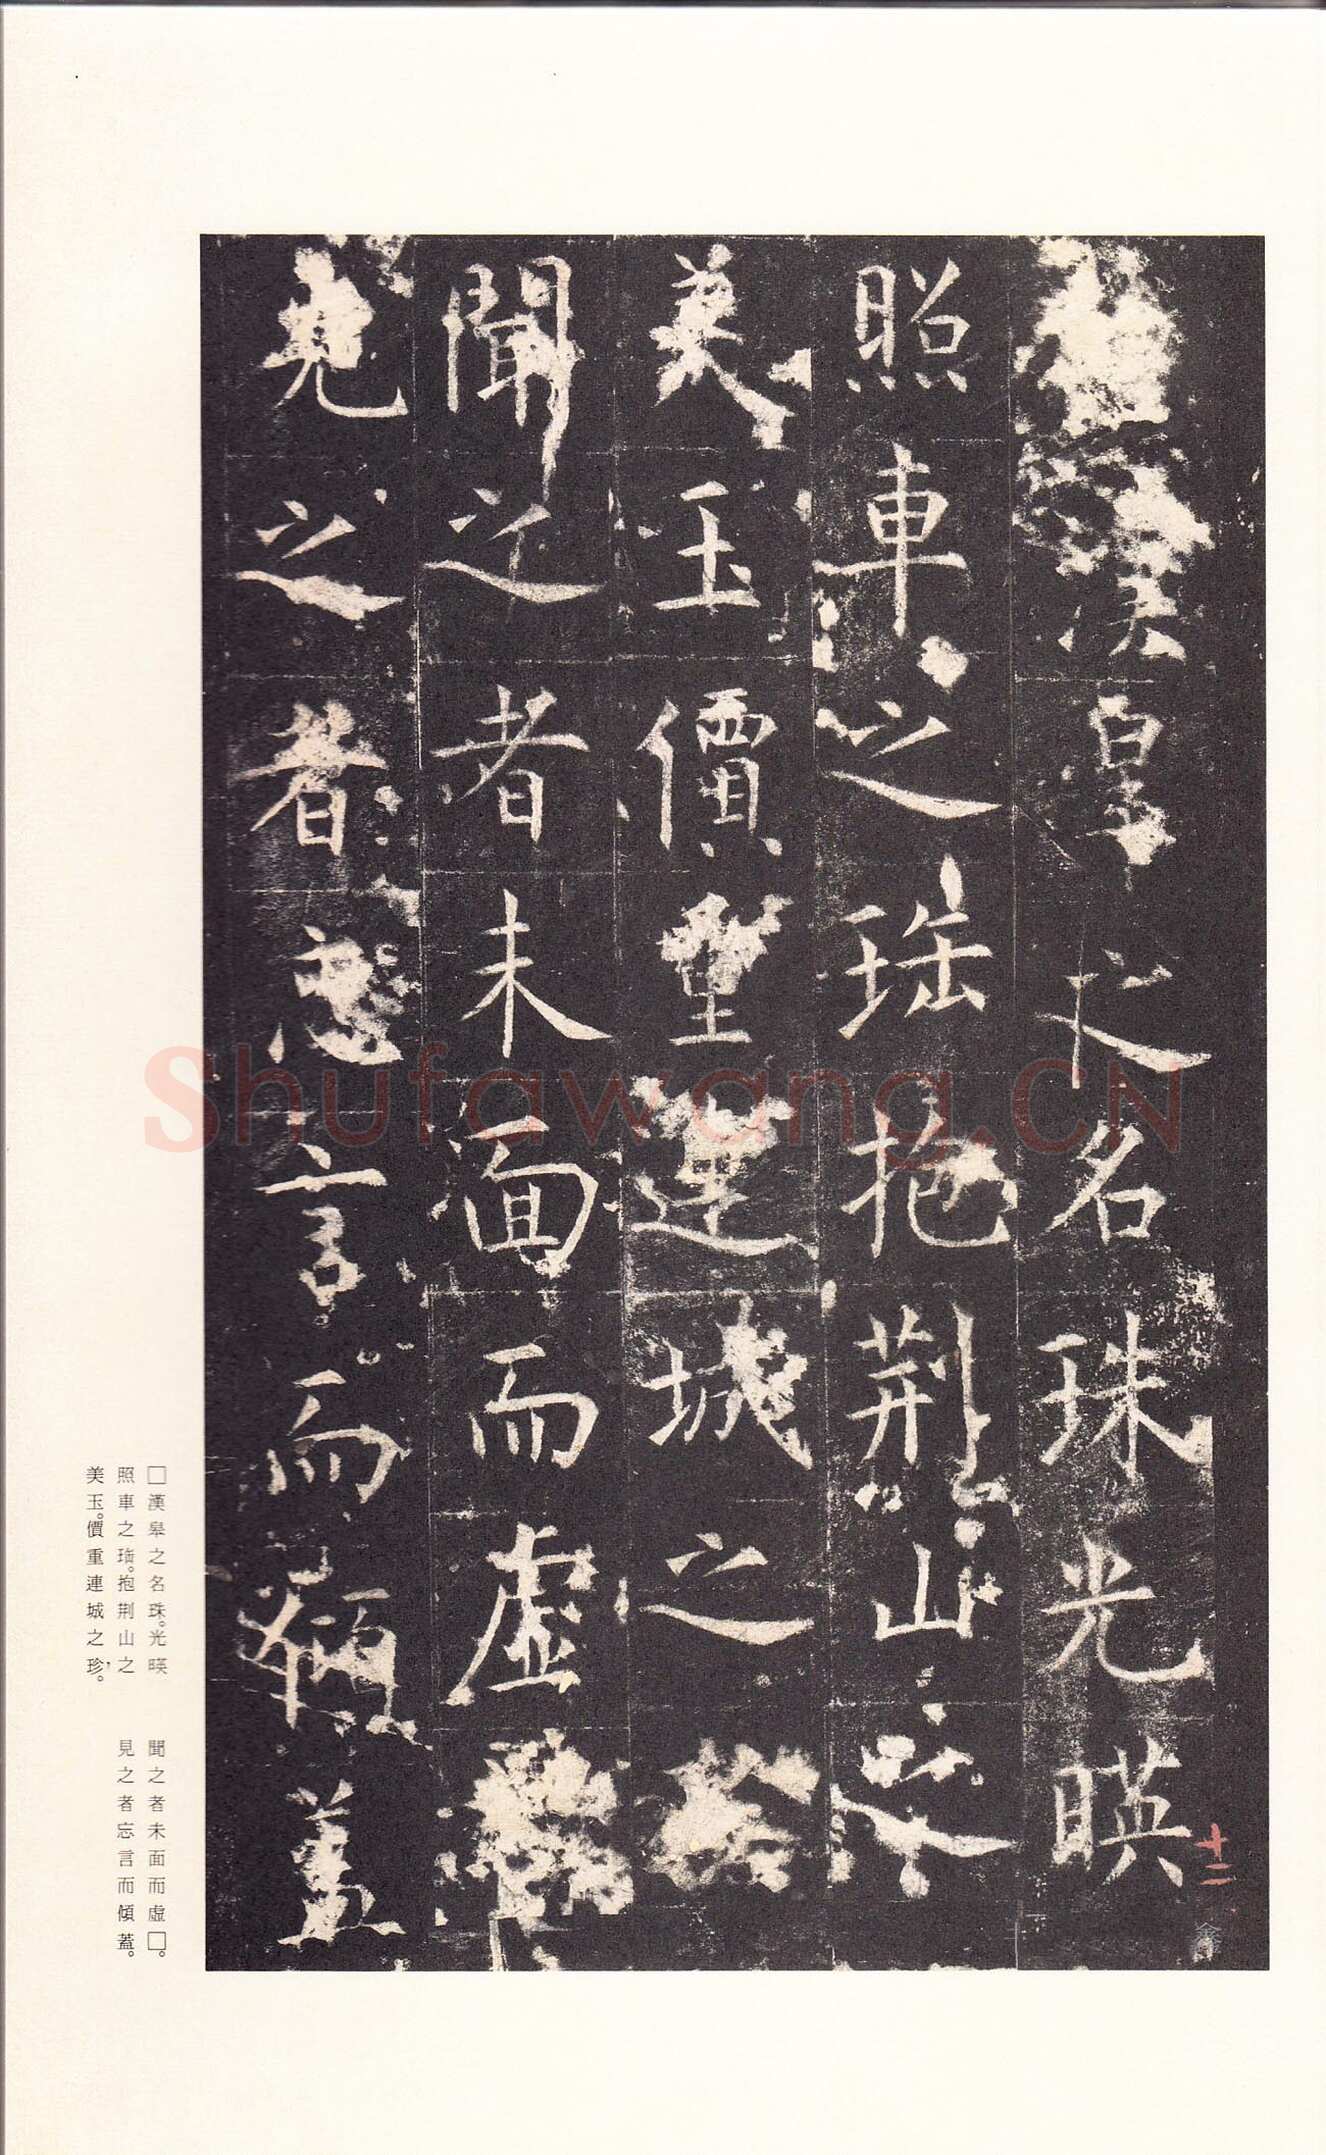 漢皐之名珠光暎
照車之瑎抱荆山之
美玉價重連城之
聞之者未面而虛
見之者忘言而傾蓋
十二
Shufawang.CN
□漢皋之名珠。光暎
照車之瑎。抱荆山之
美玉。價重連城之珍。
聞之者未面而虛□。
見之者忘言而傾蓋。